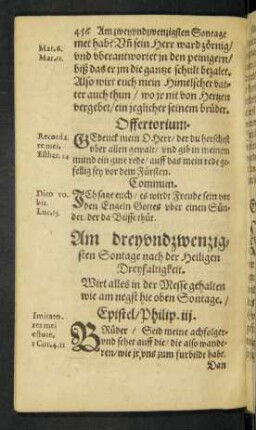 456 Am zweyvndzwenzigsten Sontage
met habe? Vñ sein Herr ward zörnig/
Mat. 6.
vnd vberantwortet jn den peinigern/
Mat. 11.
biß das er jm die gantze schult bezalet.
Also wirt euch mein Himelischer vat-
ter auch thun/ wo jr nit von Hertzen
vergebet/ ein jeglicher seinem brüder.
Offertorium.
Recorda-
re mei.
Esther. 14
GEdenck mein O Herr/ der du herschest
vber allen gewalt/ vnd gib in meinem
mund ein gute rede/ auff das mein rede ge-
fellig sey vor dem Fürsten.
Commun.
Dico vo-
bis.
Luc. 15.
ICh sage euch/ es wirdt Freude sein vor
den Engeln Gottes vber einen Sün-
der, der da Büsse thüt.
Am dreyvndzwenzig-
sten Sontage nach der Heiligen
Dreyfaltigkeit.
Wirt alles in der Messe gehalten
wie am negst hie oben Sontage. /
Epistel/ Philip. iij.
Imitato-
res mei
estote.
1 Cor. 4. 11
BRüder / Seid meine achfolger
vnd sehet auff die/ die also wande-
ren/ wie jr vns zum furbilde habt.
Dan